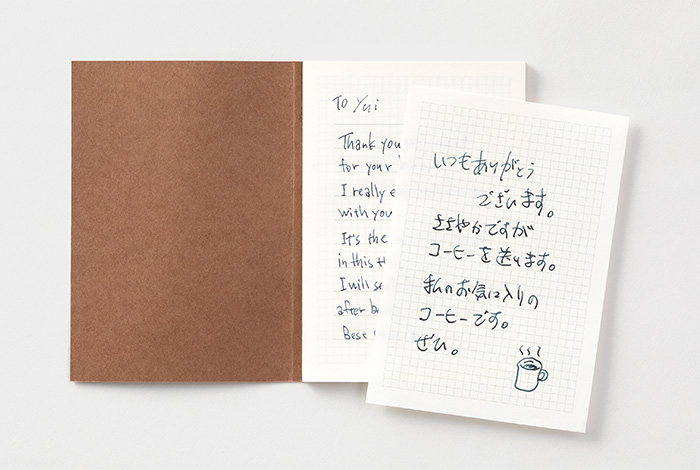 To Yui
Thank you
for your
I really
with you
It's the
in this
I will
after
Best
いつもありがとう
ございます。
ささやかですが
コーヒーを送ります。
私のお気に入りの
コーヒーです。
ぜひ。